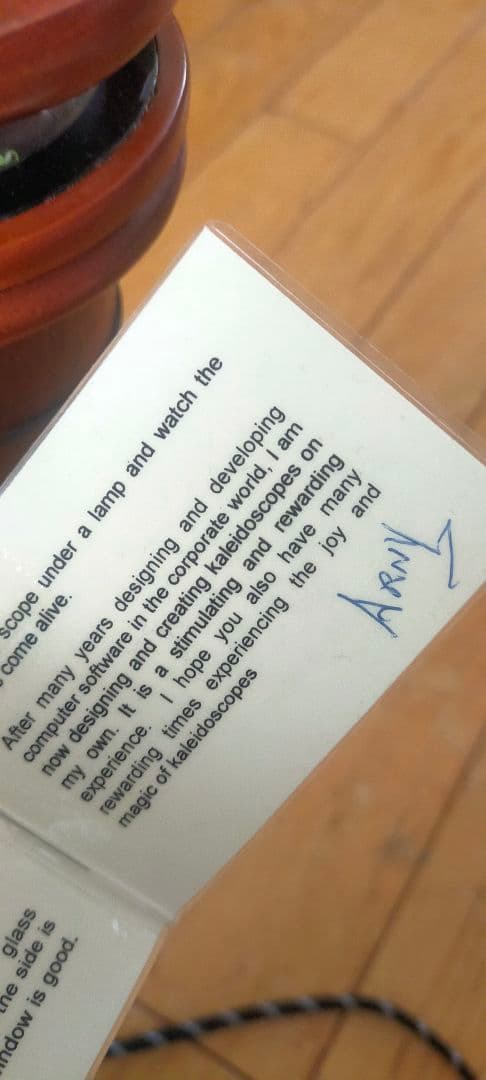 glass
the side is
window is good.
scope under a lamp and watch the
come alive.
After many years designing and developing
computer software in the corporate world, I am
now designing and creating kaleidoscopes on
my own. It is a stimulating and rewarding
experience. I hope you also have many
rewarding times experiencing the joy and
magic of kaleidoscopes
ARNY